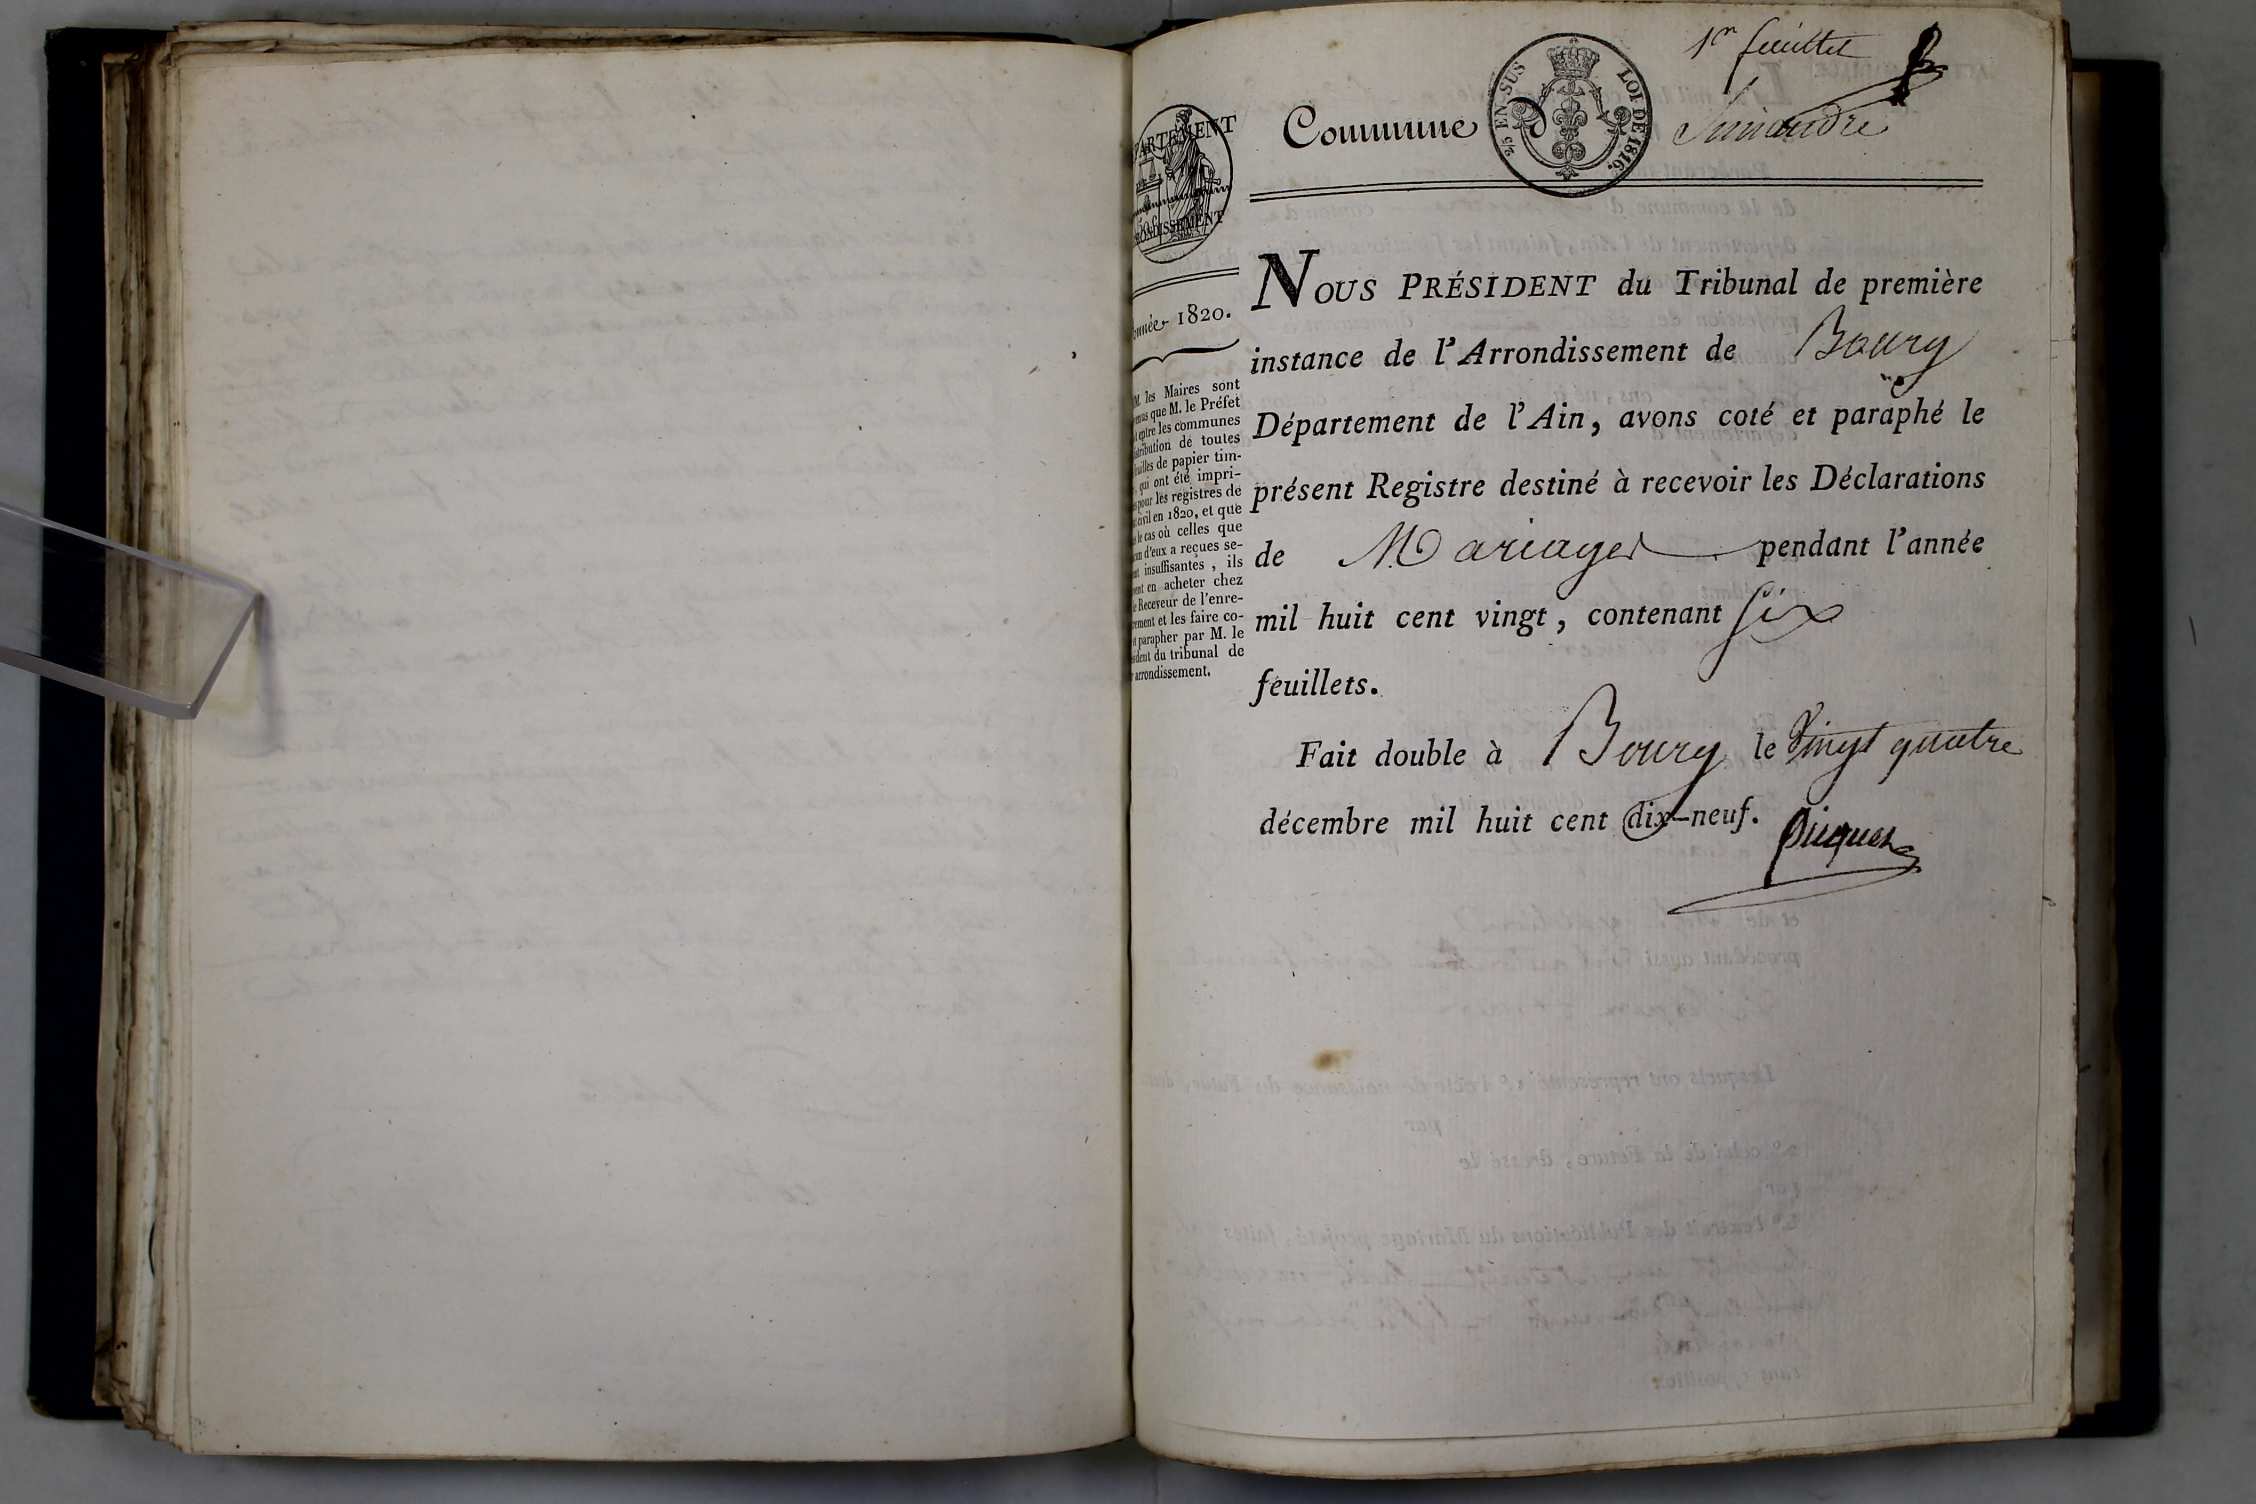 1er feuillet
25 EN SUS
LOI DE 1816.
Commune d Simandre
ARTEMENT
RONDISSEMENT
année 1820.
M. les Maires sont
que M. le Préfet
entre les communes
tribution de toutes
feuilles de papier tim-
qui ont été impri-
pour les registres de
civil en 1820, et que
le cas où celles que
d'eux a reçues se-
insuffisantes, ils
en acheter chez
Receveur de l'enre-
et les faire co-
parapher par M. le
du tribunal de
arrondissement.
NOUS PRÉSIDENT du Tribunal de première
instance de l'Arrondissement de Bourg
Département de l'Ain, avons coté et paraphé le
présent Registre destiné à recevoir les Déclarations
de Mariages pendant l'année
mil huit cent vingt, contenant Six
feuillets.
Fait double à Bourg le Vingt quatre
décembre mil huit cent dix-neuf.